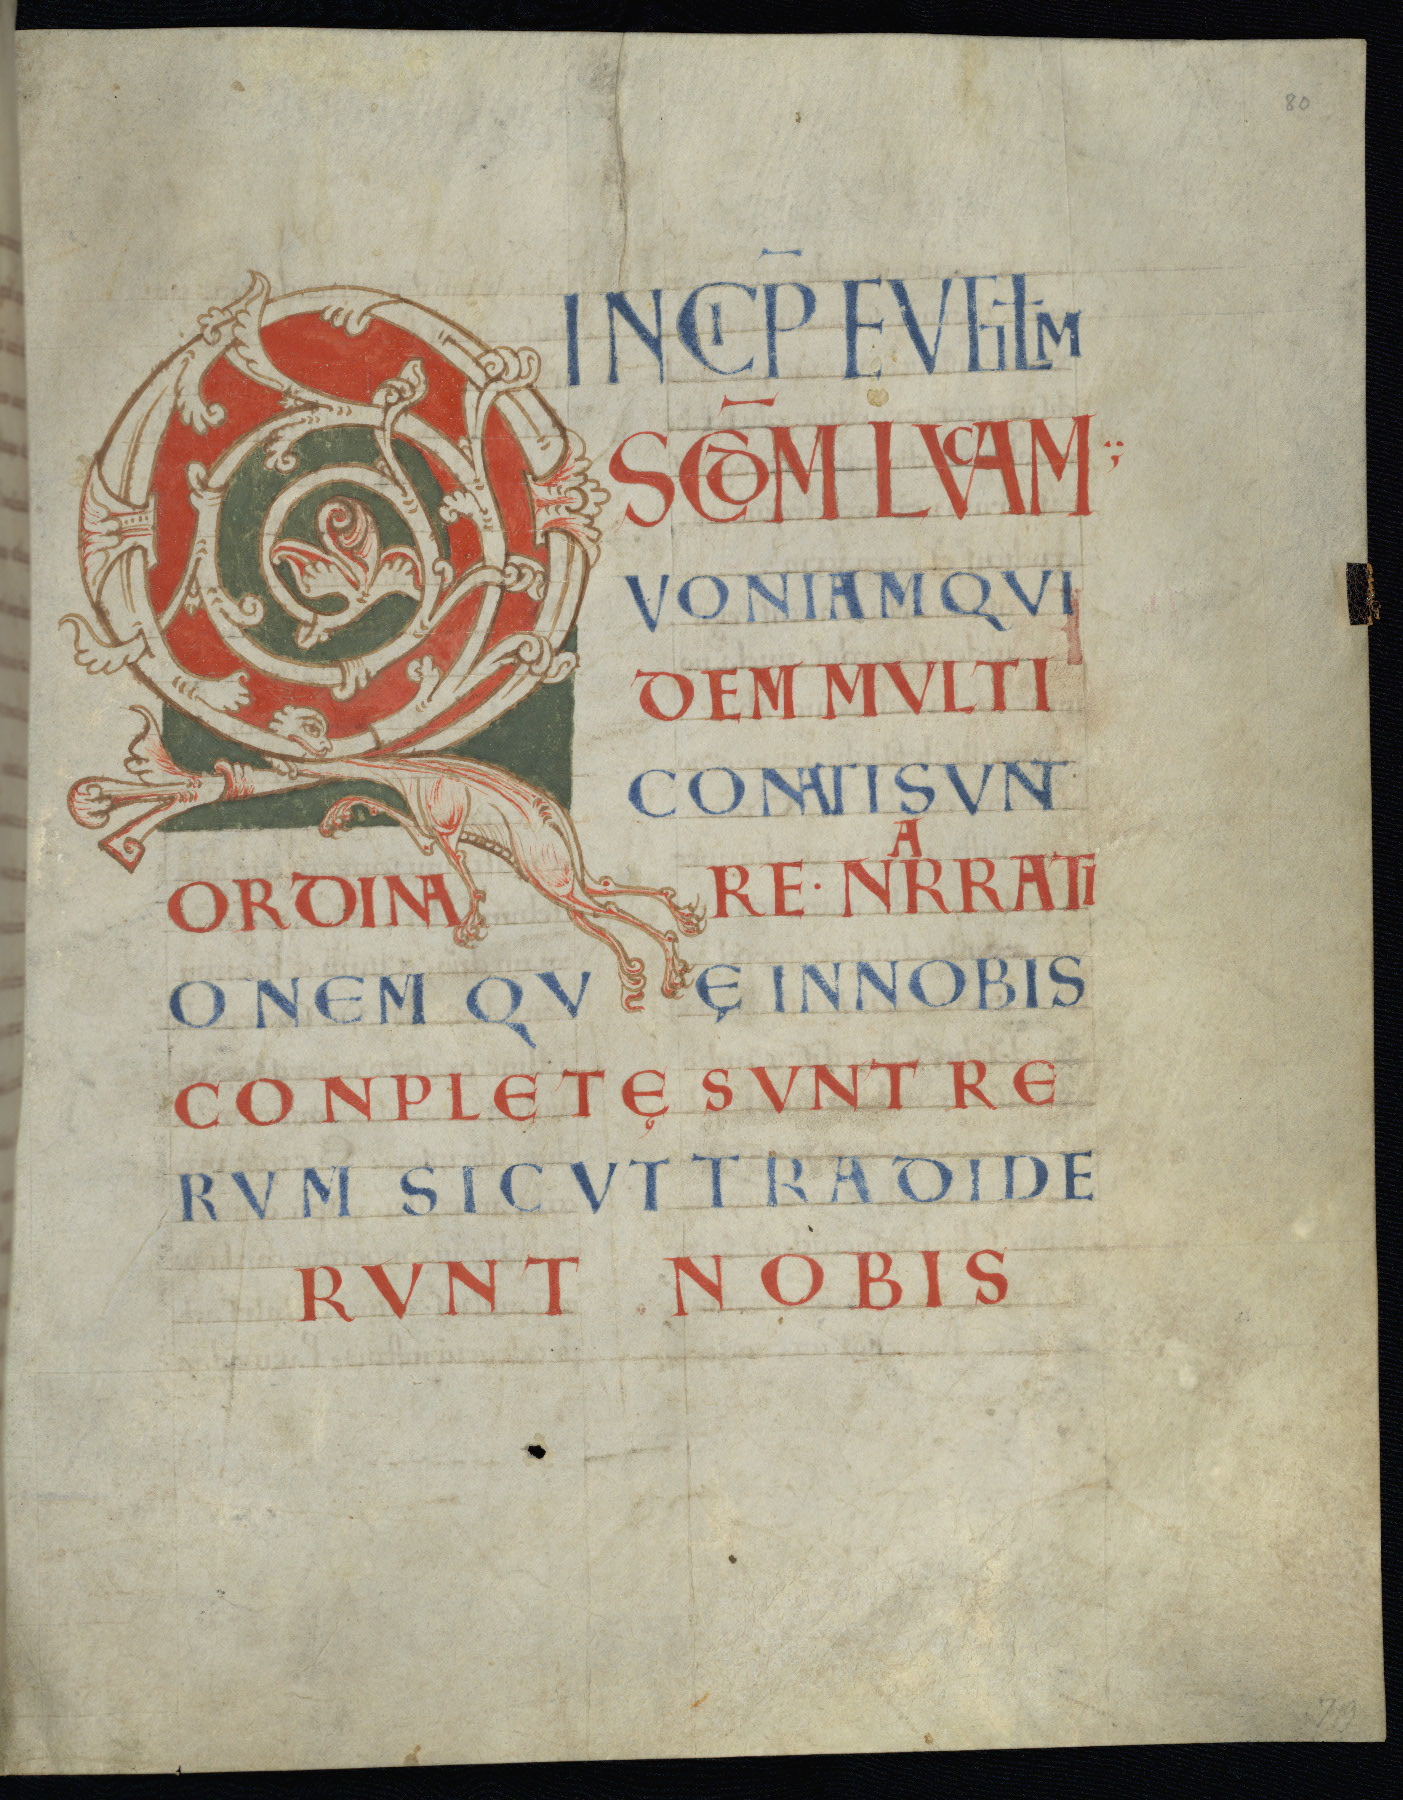 80
INCIP̄ EVḠLM
SC̄DM LVCAM
QVONIAM QVI
DEM MVLTI
CONATI SVNT
ORDINARE · NARRATI
ONEM QVĘ IN NOBIS
CONPLETĘ SVNT RE
RVM SICVT TRADIDE
RVNT NOBIS
79